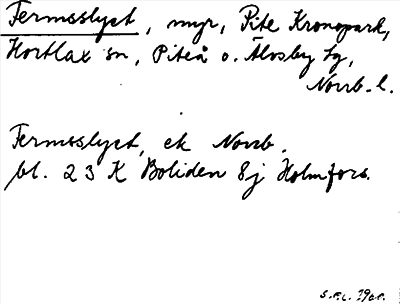 Fermsslyet, myr, Pite Kronopark,
Hortlax sn, Piteå o. Älvsby tg,
Norrb. l.
Fermsslyet, ek Norrb.
bl. 23 K Boliden 8j Holmfors.